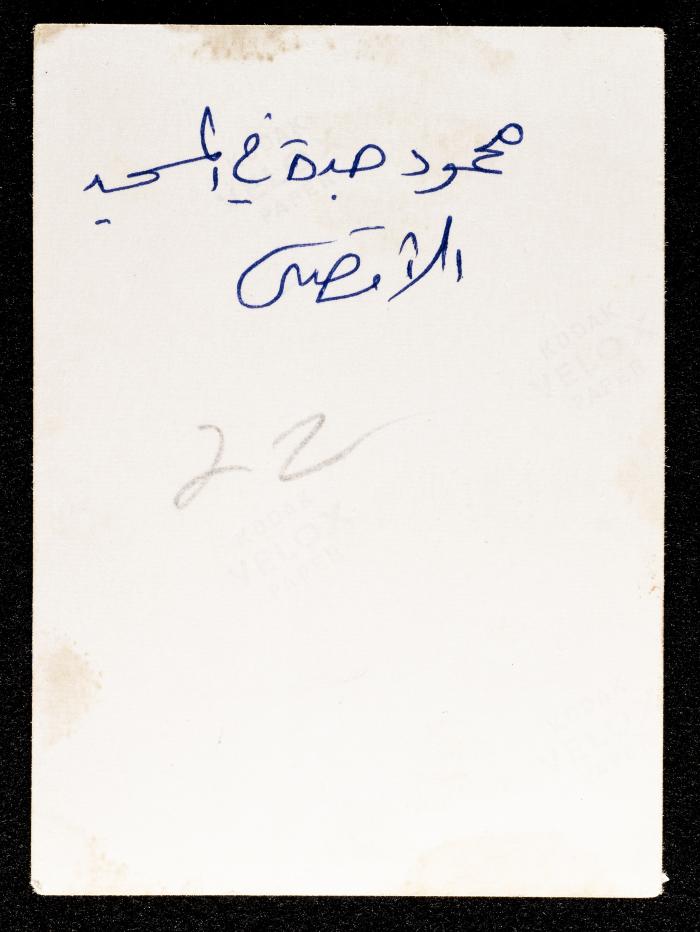 محمود صبرة في المسجد
الأقصى
22
KODAK
VELOX
PAPER
KODAK
VELOX
PAPER
KODAK
VELOX
PAPER